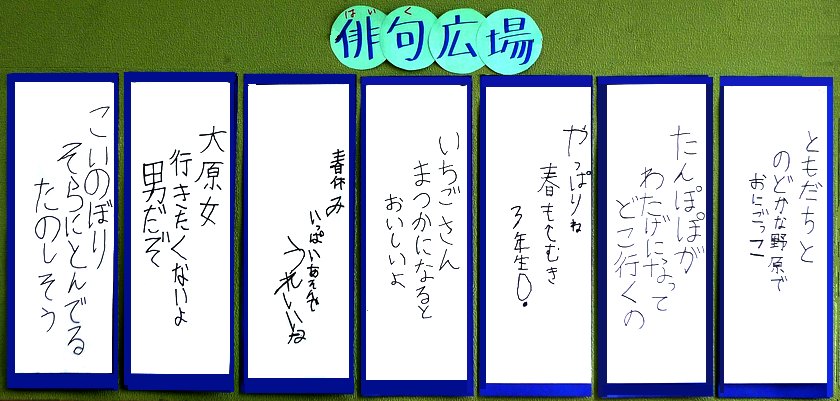 はいく
俳句広場
ともだちと
のどかな野原で
おにごっこ
たんぽぽが
わたげになって
どこ行くの
やっぱりね
春もせむき
3年生D.
いちごさん
まっかになると
おいしいよ
春休み
いっぱいあそんで
うれしいな
大原女
行きたくないよ
男だぞ
こいのぼり
そらにとんでる
たのしそう